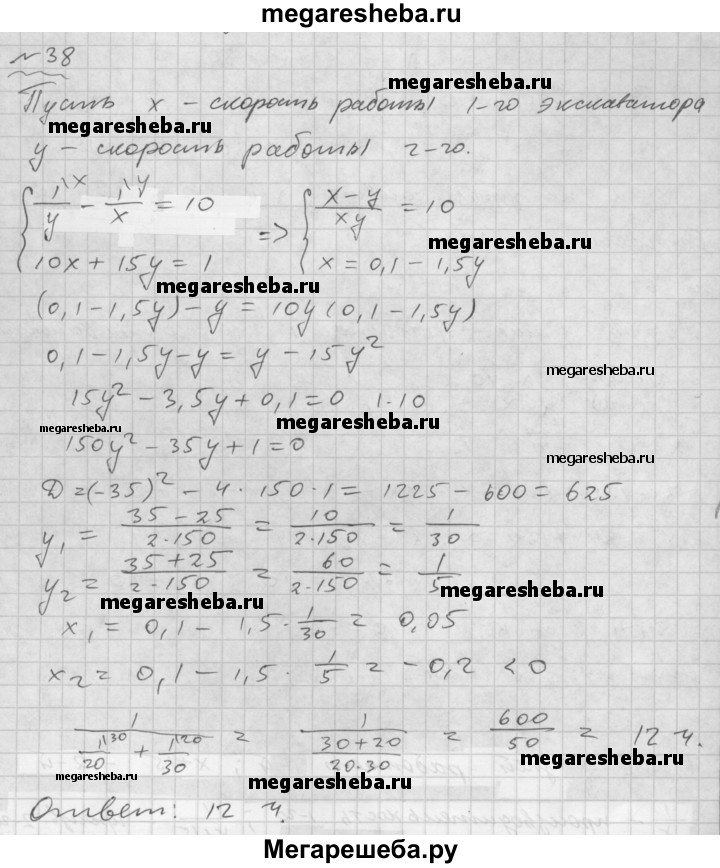 megaresheba.ru
№38
megaresheba.ru
Пусть x – скорость работы 1-го экскаватора
megaresheba.ru
y – скорость работы 2-го.
{ 1\x/y − 1\y/x = 10 => { x−y/xy = 10
megaresheba.ru
10x + 15y = 1 x = 0,1 − 1,5y
megaresheba.ru
(0,1−1,5y) − y = 10y(0,1−1,5y)
0,1−1,5y−y = y − 15y²
megaresheba.ru
15y² − 3,5y + 0,1 = 0 |·10
megaresheba.ru
megaresheba.ru
150y² − 35y + 1 = 0
megaresheba.ru
D = (−35)² − 4 · 150 · 1 = 1225 − 600 = 625
y₁ = 35−25/2·150 = 10/2·150 = 1/30
y₂ = 35+25/2·150 = 60/2·150 = 1/5
megaresheba.ru
megaresheba.ru
x₁ = 0,1 − 1,5 · 1/30 = 0,05
x₂ = 0,1 − 1,5 · 1/5 = −0,2 < 0
1/(1\30/20 + 1\20/30) = 1/(30+20/20·30) = 600/50 = 12 ч.
megaresheba.ru
megaresheba.ru
megaresheba.ru
Ответ: 12 ч.
Мегарешеба.ру